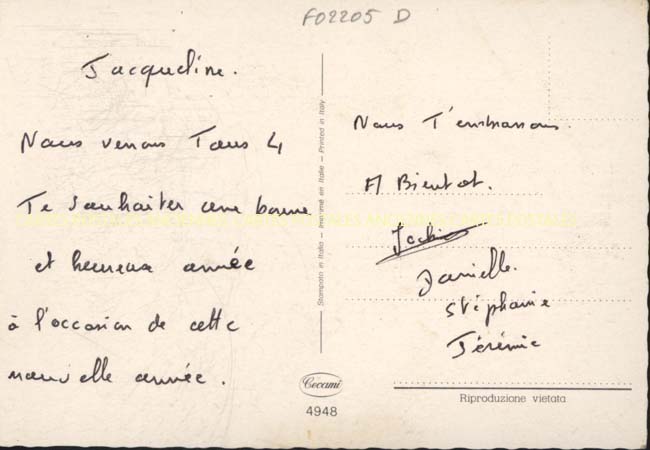 F02205 D
Jacqueline.
Nous venons Tous 4
Te souhaiter une bonne
et heureuse année
à l'occasion de cette
nouvelle année.
Stampato in Italia — Imprimé en Italie — Printed in Italy
Cecami
4948
Nous T'embrassons.
A Bientot.
Danielle.
Stéphanie
Jérémie
Riproduzione vietata